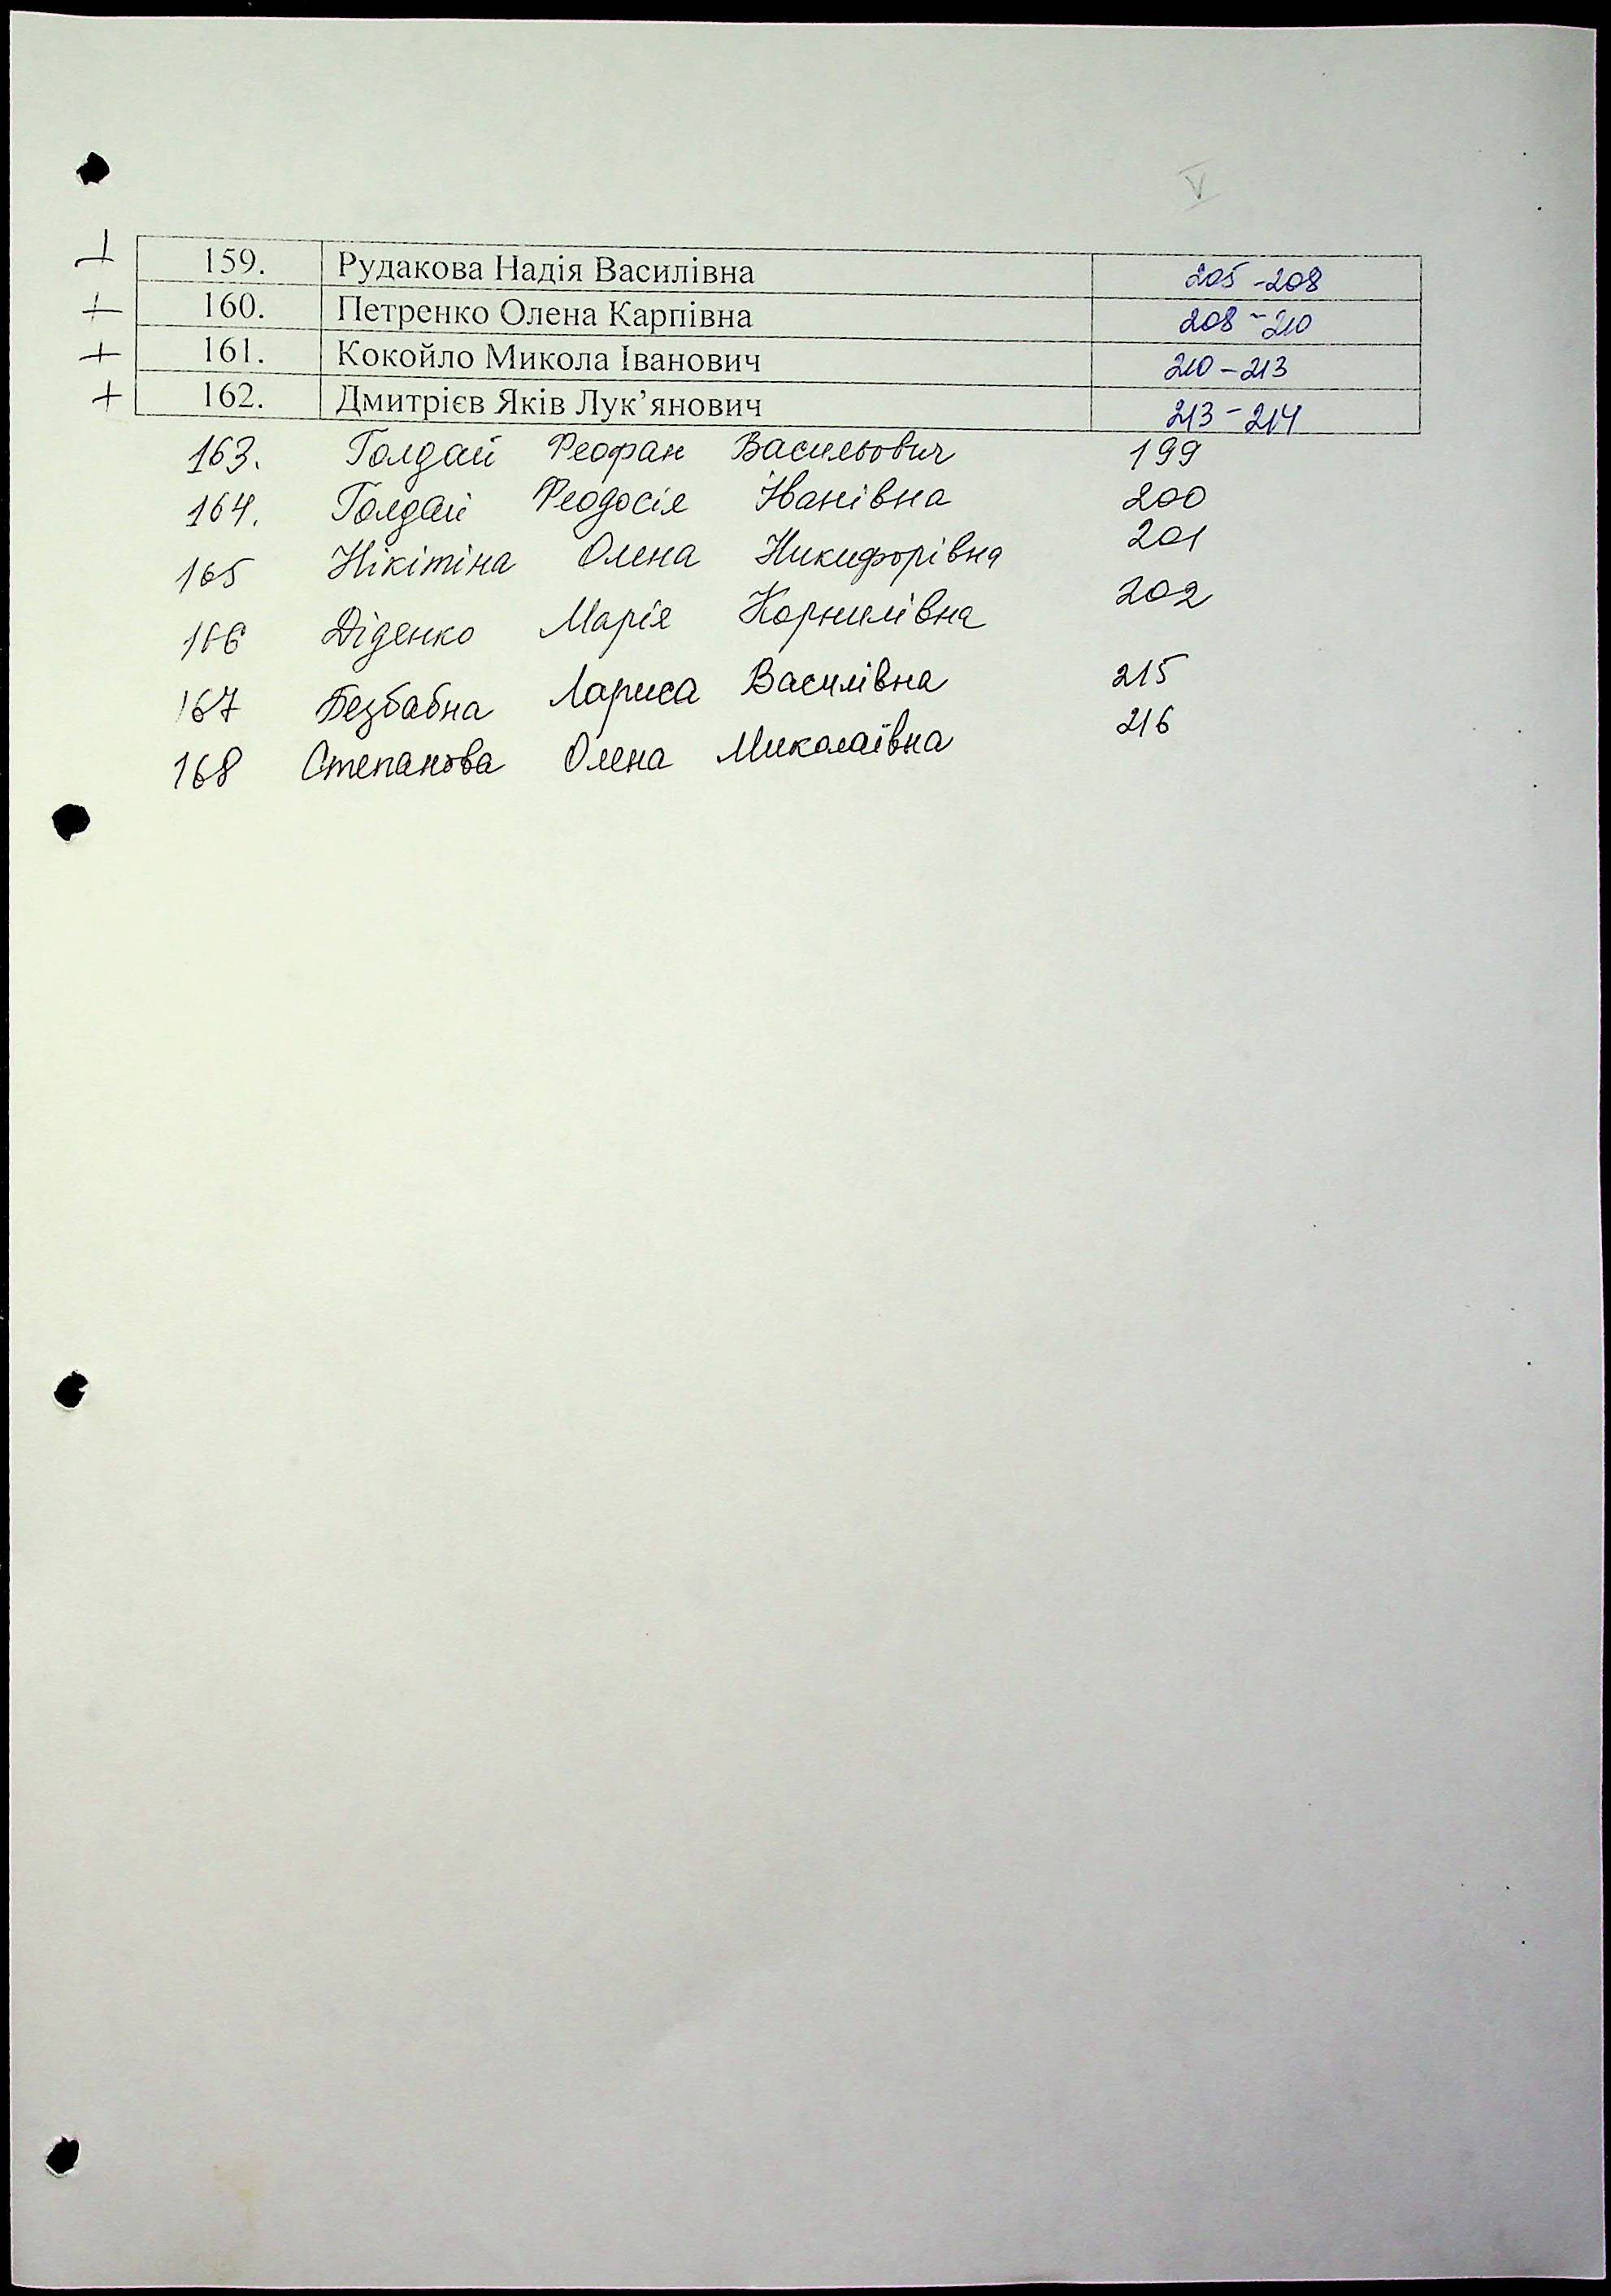 V
+ 159. Рудакова Надія Василівна 205-208
+ 160. Петренко Олена Карпівна 208-210
+ 161. Кокойло Микола Іванович 210-213
+ 162. Дмитрієв Яків Лук’янович 213-214
163. Голдай Феофан Васильович 199
164. Голдай Феодосія Іванівна 200
165 Нікітіна Олена Никифорівна 201
166 Діденко Марія Корнилівна 202
167 Безбабна Лариса Василівна 215
168 Степанова Олена Миколаївна 216